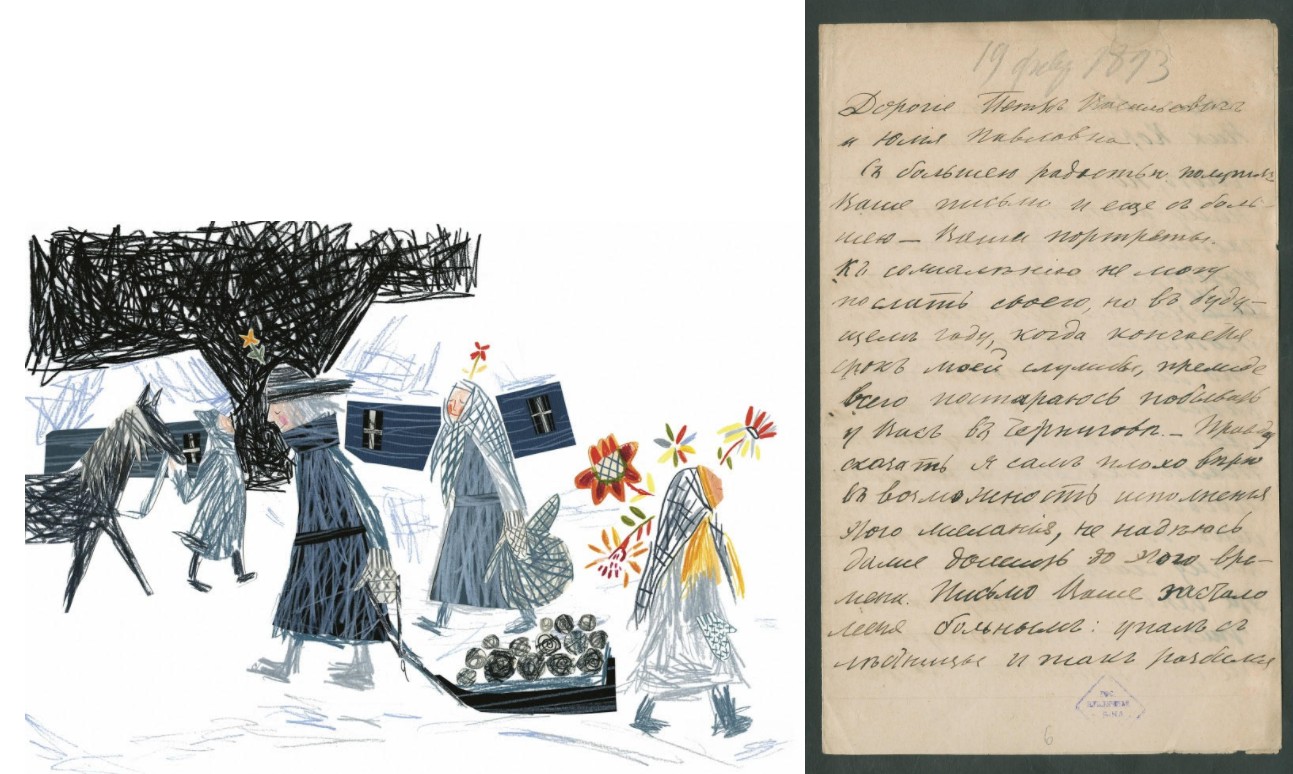 19 февр 1893
Дорогіе Петръ Васильевичъ
и Юлія Павловна.
Съ большею радостью получилъ
Ваше письмо и еще съ боль-
шею — Ваши портреты.
Къ сожалѣнію не могу
послать своего, но въ буду-
щемъ году, когда кончается
срокъ моей службы, прежде
всего постараюсь побывать
у Васъ въ Черниговѣ. — Правду
сказать я самъ плохо вѣрю
въ возможность исполненія
этого желанія, не надѣюсь
даже дожить до этого вре-
мени. Письмо Ваше застало
меня больнымъ: упалъ съ
лѣстницы и такъ разбился
6